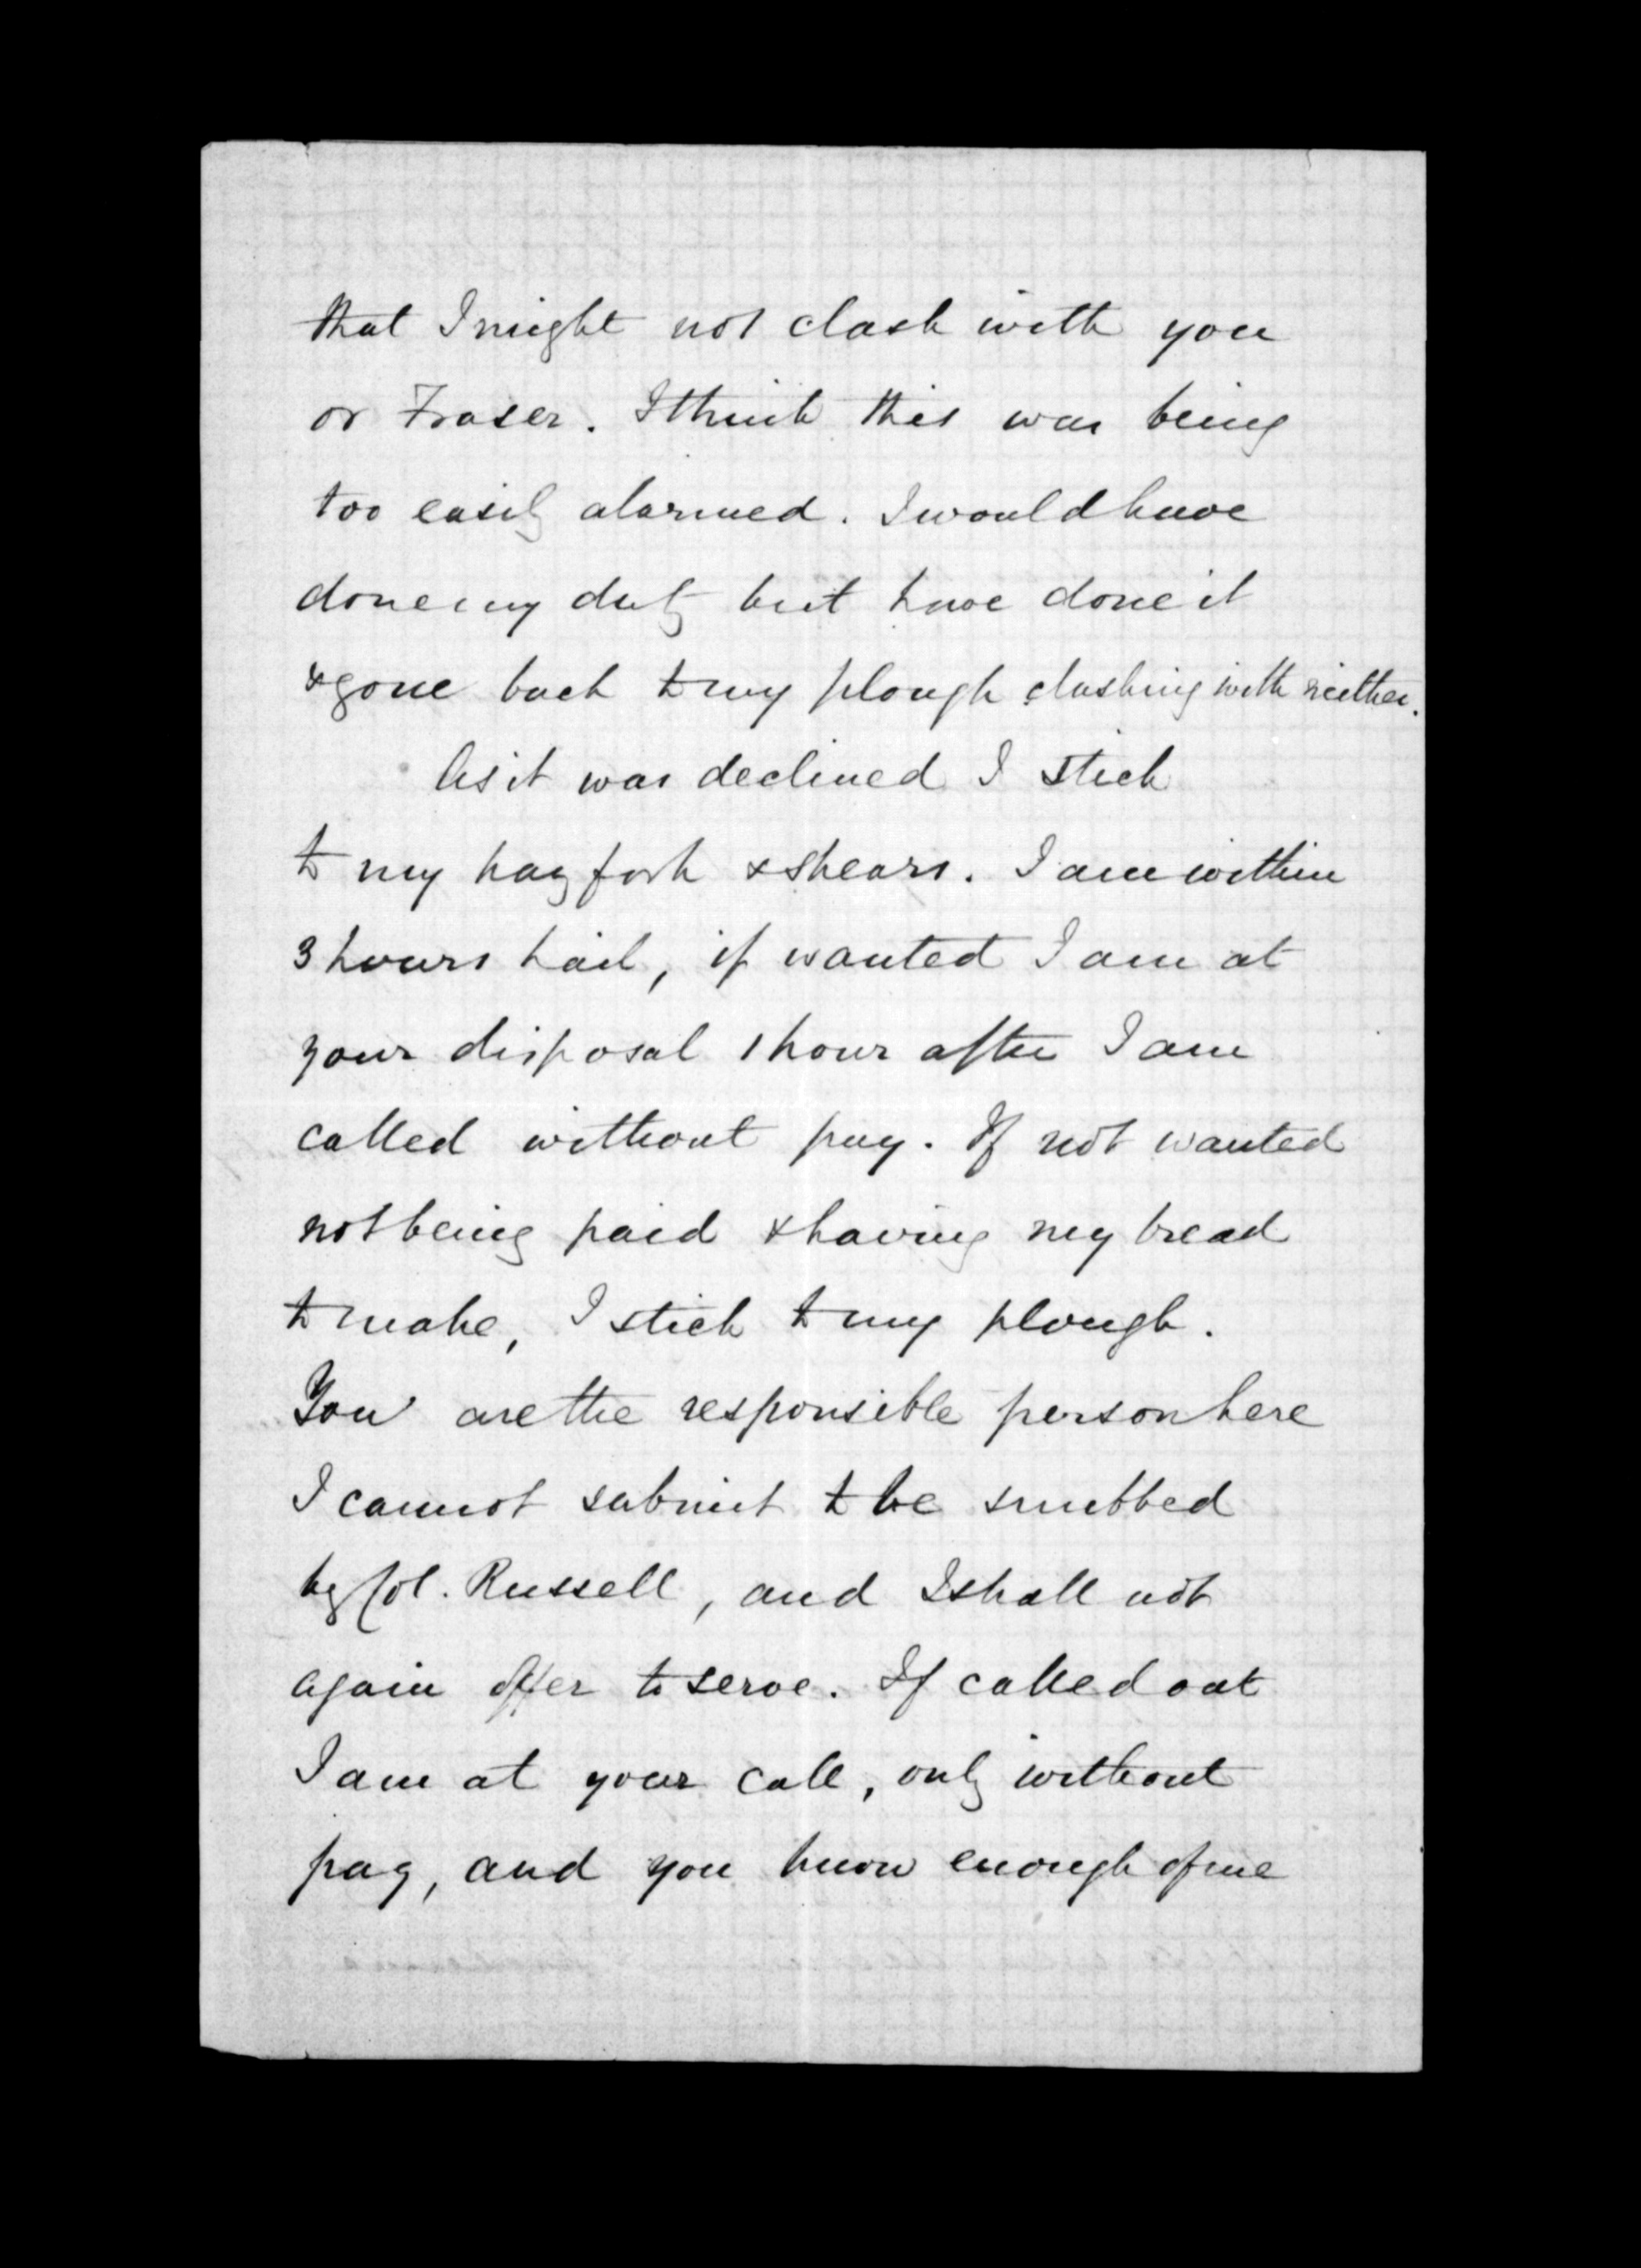 that I might not clash with you
or Fraser. I think this was being
too easily alarmed. I would have
done my duty but have done it
& gone back to my plough clashing with neither.
As it was declined I stick
to my hay fork & shears. I am within
3 hours hail, if wanted I am at
your disposal 1 hour after I am
called without pay. If not wanted
not being paid & having my bread
to make, I stick to my plough.
You are the responsible person here
I cannot submit to be snubbed
by Col. Russell, and I shall not
again offer to serve. If called out
I am at your call, only without
pay, and you know enough of me